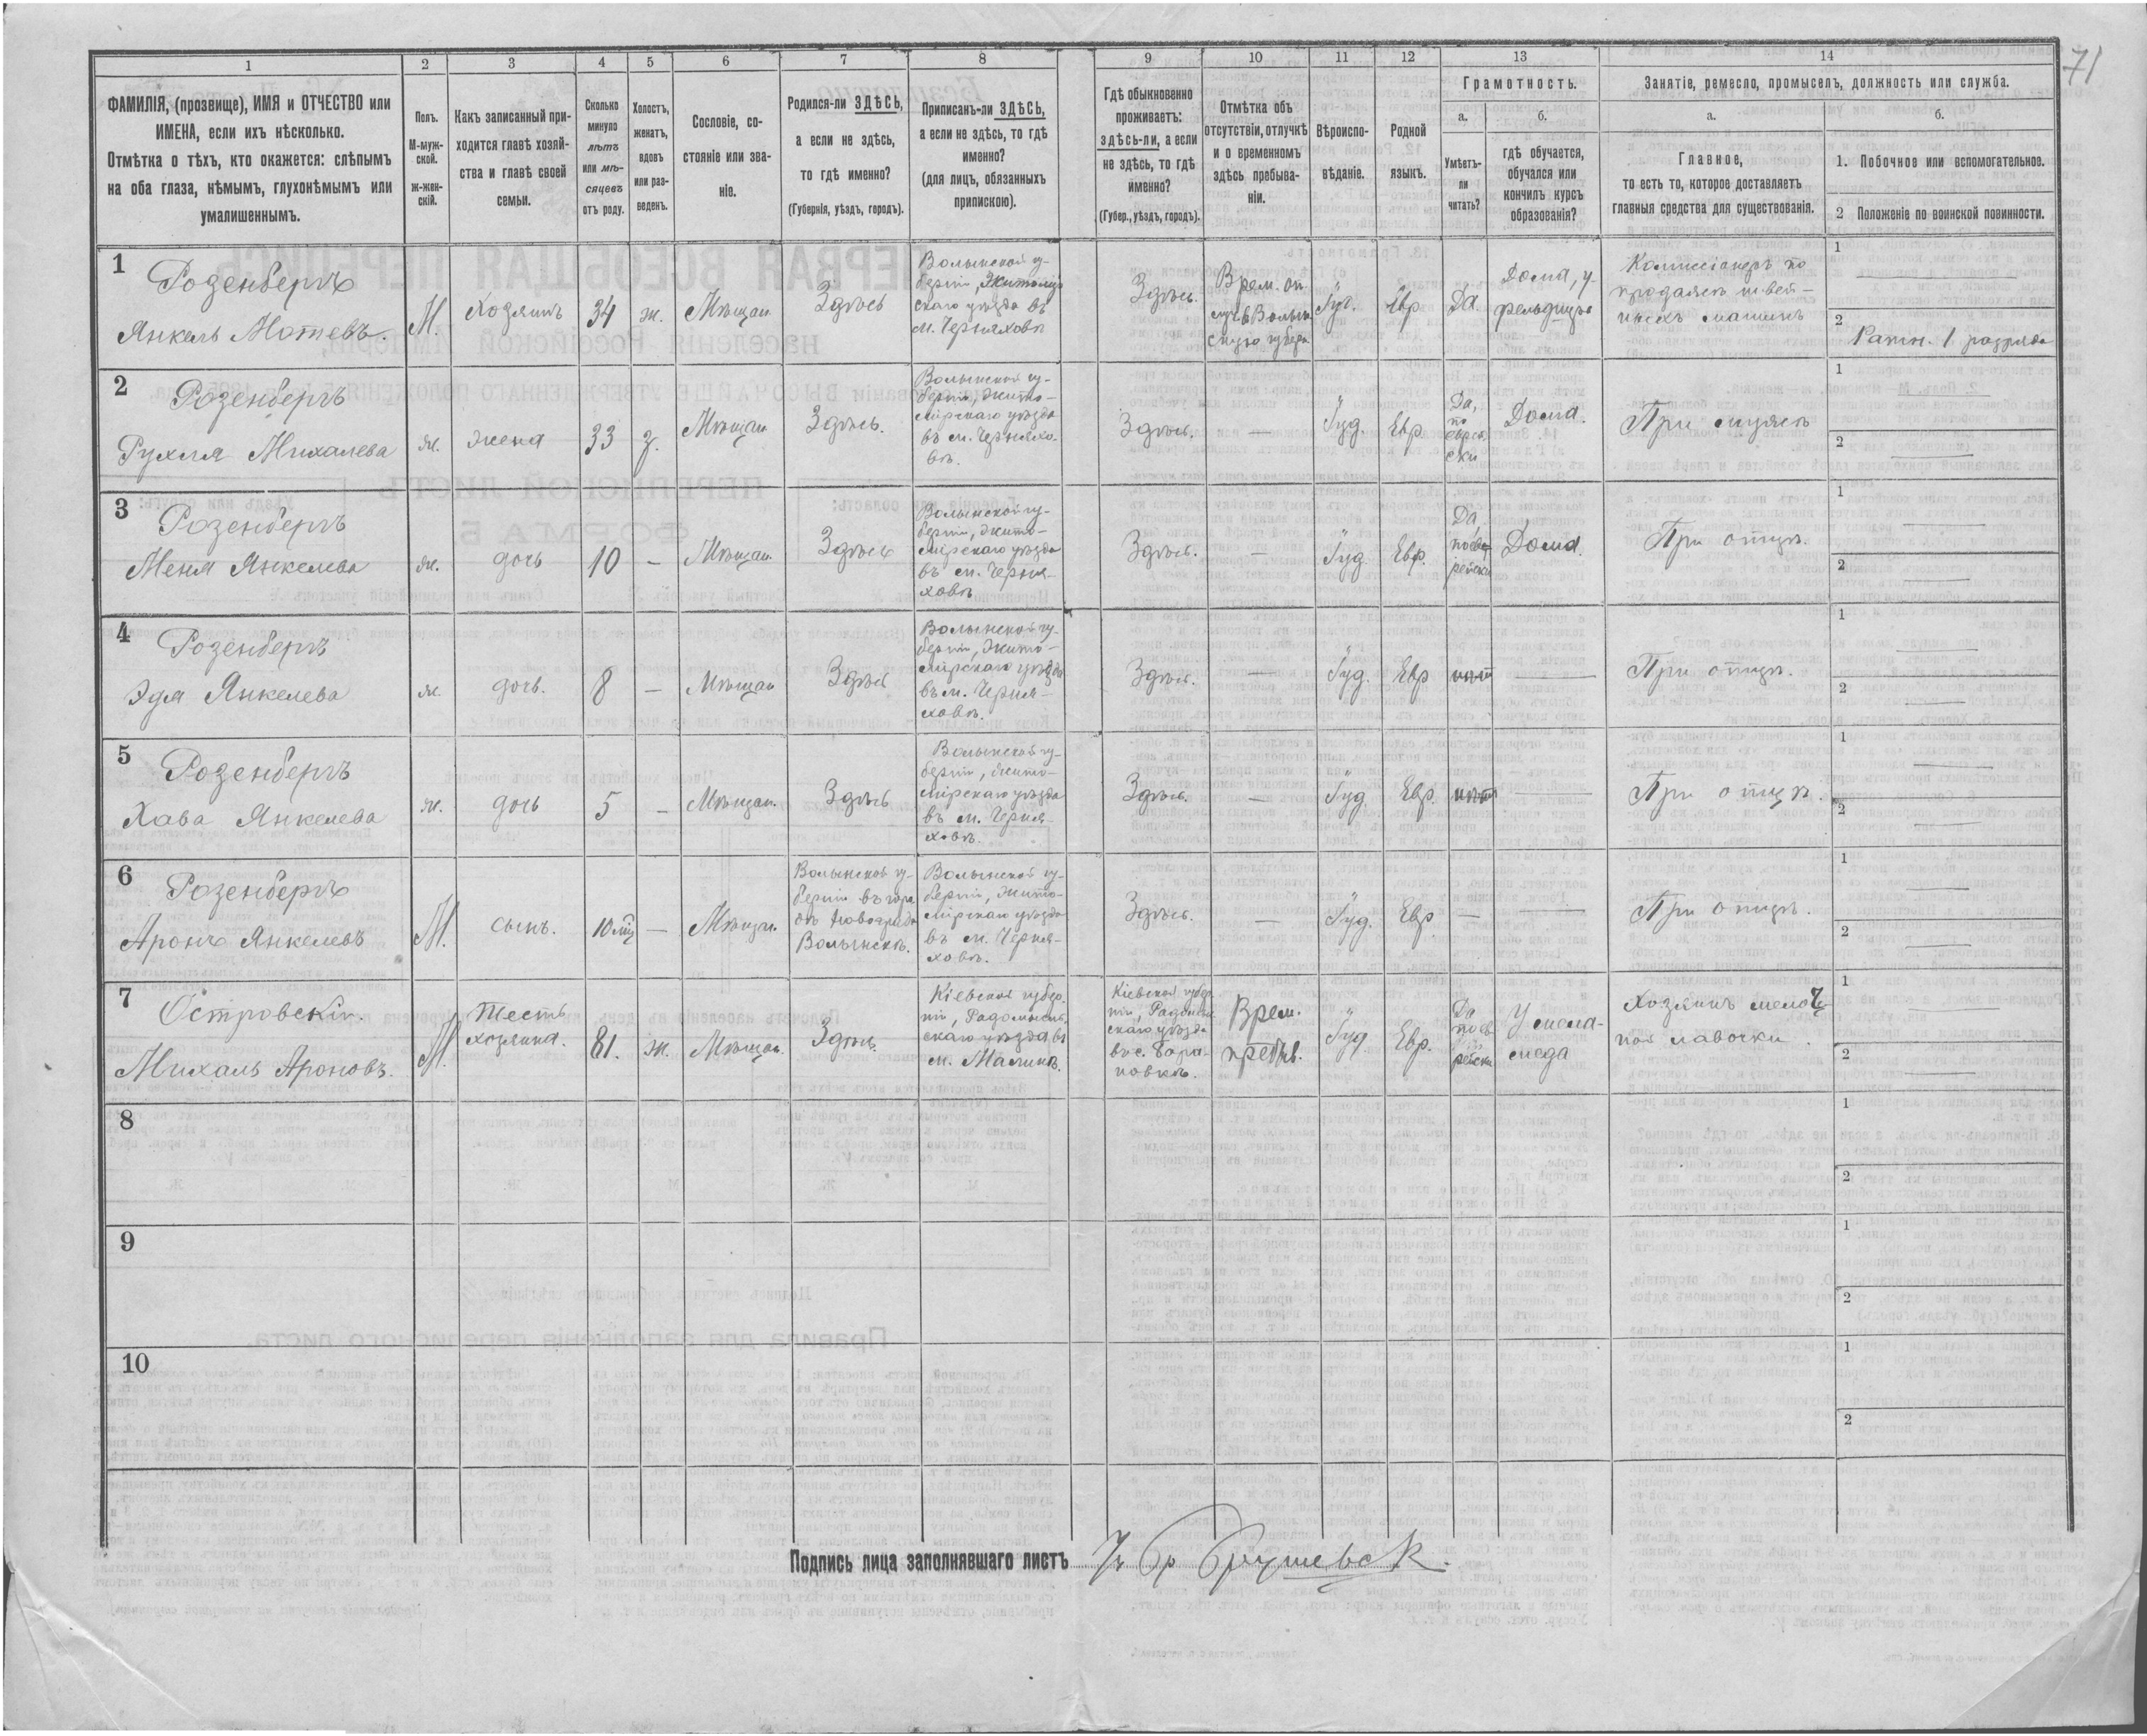 71
1
2
3
4
5
6
7
8
9
10
11
12
13
14
ФАМИЛІЯ, (прозвище), ИМЯ и ОТЧЕСТВО или
ИМЕНА, если ихъ нѣсколько.
Отмѣтка о тѣхъ, кто окажется: слѣпымъ
на оба глаза, нѣмымъ, глухонѣмымъ или
умалишеннымъ.
Полъ.
М-муж-
ской.
ж-жен-
скій.
Какъ записанный при-
ходится главѣ хозяй-
ства и главѣ своей
семьи.
Сколько
минуло
лѣтъ
или мѣ-
сяцевъ
отъ роду.
Холостъ,
женатъ,
вдовъ
или раз-
веденъ.
Сословіе, со-
стояніе или зва-
ніе.
Родился-ли ЗДѢСЬ,
а если не здѣсь,
то гдѣ именно?
(Губернія, уѣздъ, городъ).
Приписанъ-ли ЗДѢСЬ,
а если не здѣсь, то гдѣ
именно?
(для лицъ, обязанныхъ
припискою).
Гдѣ обыкновенно
проживаетъ:
здѣсь-ли, а если
не здѣсь, то гдѣ
именно?
(Губер., уѣздъ, городъ).
Отмѣтка объ
отсутствіи, отлучкѣ
и о временномъ
здѣсь пребыва-
ніи.
Вѣроиспо-
вѣданіе.
Родной
языкъ.
Грамотность.
а.
Умѣетъ-
ли
читать?
б.
гдѣ обучается,
обучался или
кончилъ курсъ
образованія?
Занятіе, ремесло, промыселъ, должность или служба.
а.
Главное,
то есть то, которое доставляетъ
главныя средства для существованія.
б.
1. Побочное или вспомогательное.
2 Положеніе по воинской повинности.
1
Розенбергъ
Янкель Мотевъ.
М.
Хозяинъ
34
ж.
Мѣщан
Здѣсь
Волынской гу-
берніи, Житомір
скаго уѣзда въ
м. Черняховѣ
Здѣсь.
Врем. от
луч. въ Волын
скую губерн
Іуд.
Евр
Да
Дома, у
фельдшера
Коммиссіонеръ по
продажѣ швей-
ныхъ машинъ
1
2
Ратн. 1 разряда
2
Розенбергъ
Рухля Михалева
ж.
жена
33
з.
Мѣщан
Здѣсь.
Волынской гу-
берніи, Жито-
мірскаго уѣзда
въ м. Черняхо-
вѣ.
Здѣсь.
—
Іуд.
Евр
Да,
по
еврей
ски
Дома.
При мужѣ
1
2
3
Розенбергъ
Меня Янкелева
ж.
дочь
10
—
Мѣщан
Здѣсь
Волынской гу-
берніи, Жито-
мірскаго уѣзда
въ м. Черня-
ховѣ
Здѣсь.
—
Іуд
Евр.
Да,
по ев
рейски
Дома.
При отцѣ.
1
2
4
Розенбергъ
Эдя Янкелева
ж.
дочь.
8
—
Мѣщан
Здѣсь
Волынской гу-
берніи, Жито-
мірскаго уѣзда
въ м. Черня-
ховѣ.
Здѣсь.
—
Іуд.
Евр
нѣт
—
При отцѣ.
1
2
5
Розенбергъ
Хава Янкелева
ж.
дочь
5
—
Мѣщан.
Здѣсь
Волынской гу-
берніи, Жито-
мірскаго уѣзда
въ м. Черня-
ховѣ.
Здѣсь.
—
Іуд
Евр.
нѣт
—
При отцѣ.
1
2
6
Розенбергъ
Аронъ Янкелевъ
М.
сынъ.
10 мц
—
Мѣщн.
Волынской гу-
берніи въ горо
дѣ Новоград
Волынскѣ.
Волынской гу-
берніи, Жито-
мірскаго уѣзда
въ м. Черня-
ховѣ.
Здѣсь.
—
Іуд.
Евр
—
—
При отцѣ.
1
2
7
Островскій.
Михаль Ароновъ.
М.
Тесть
хозяина.
81.
ж.
Мѣщан.
Здѣсь.
Кіевской губер.
ніи, Радомысль
скаго уѣзда въ
м. Малинѣ.
Кіевской губер
ніи, Радомысл
скаго уѣзда
въ с. Бара-
новкѣ.
Врем.
преб.
Іуд
Евр.
Да
по ев
рейски
У мела-
меда
Хозяинъ мелоч-
ной лавочки.
1
2
8
1
2
9
1
2
10
1
2
Подпись лица заполнявшаго листъ